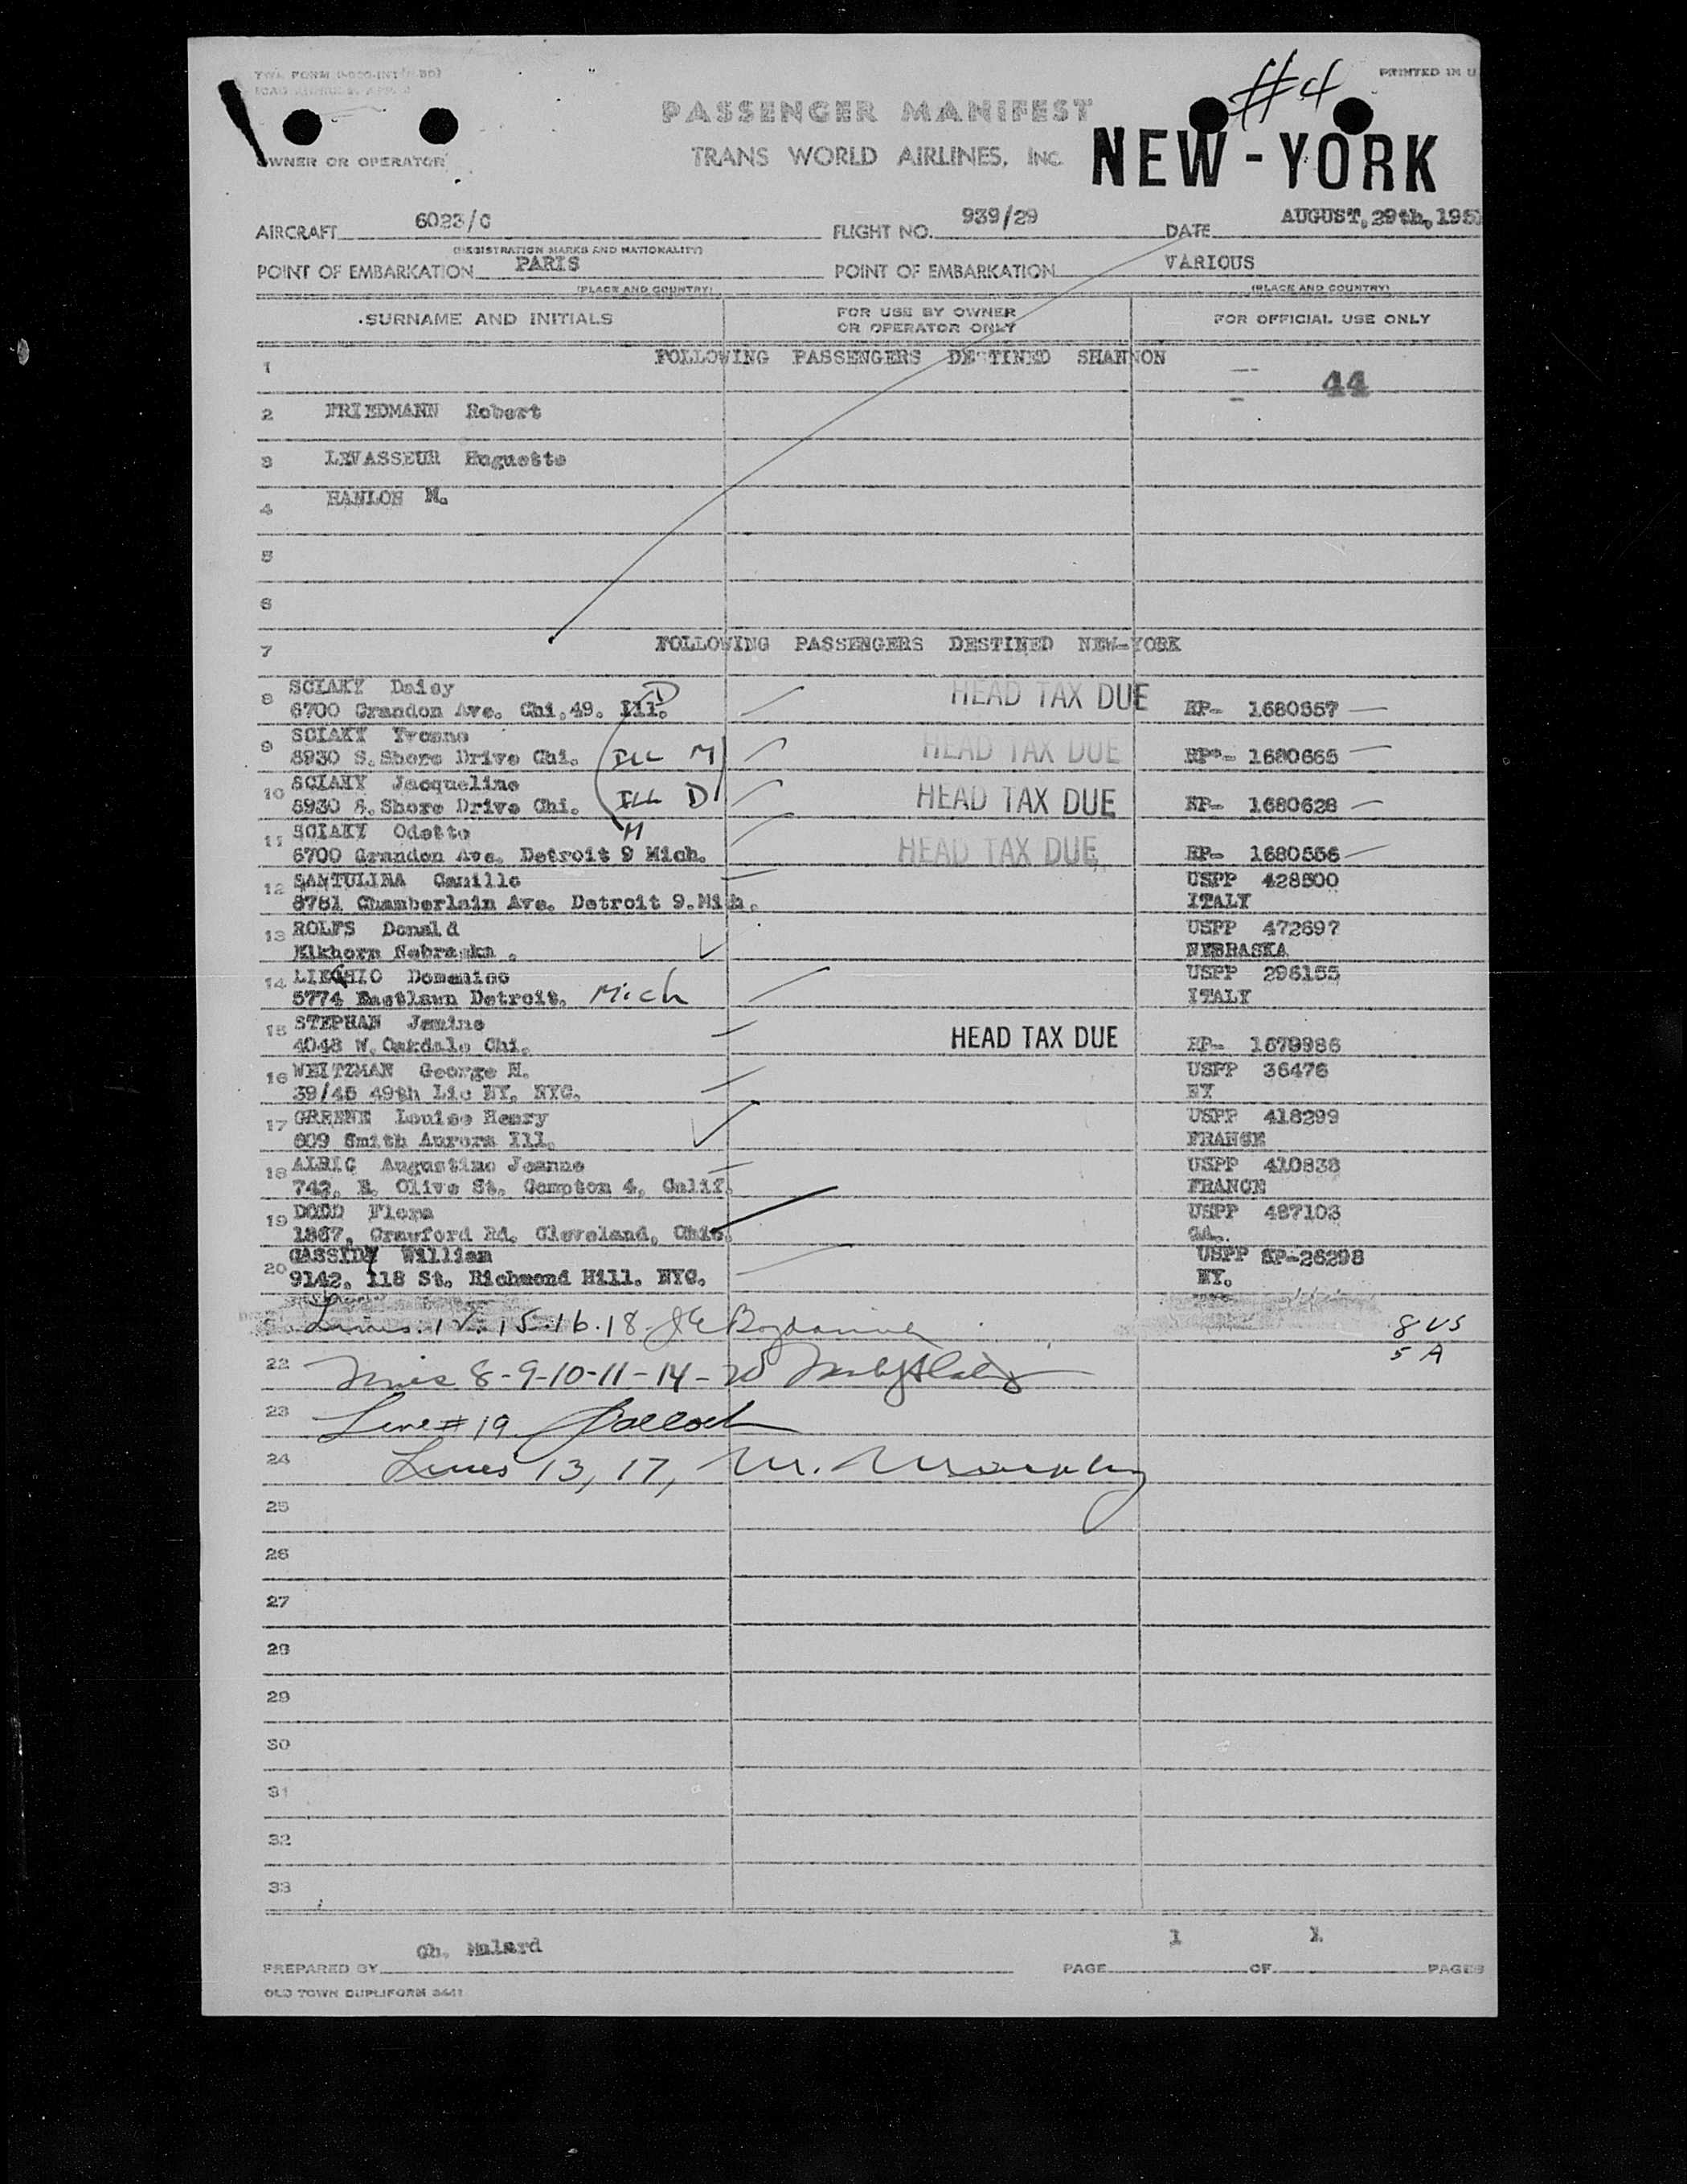 PRINTED IN U
#4
PASSENGER MANIFEST
TRANS WORLD AIRLINES, INC.
NEW-YORK
OWNER OR OPERATOR
AIRCRAFT 6023/C FLIGHT NO. 939/29 DATE AUGUST, 29th, 1951
(REGISTRATION MARKS AND NATIONALITY)
POINT OF EMBARKATION PARIS POINT OF EMBARKATION VARIOUS
(PLACE AND COUNTRY) (PLACE AND COUNTRY)
SURNAME AND INITIALS FOR USE BY OWNER OR OPERATOR ONLY FOR OFFICIAL USE ONLY
1 FOLLOWING PASSENGERS DESTINED SHANNON
44
2 FRIEDMANN Robert
3 LEVASSEUR Huguette
4 HANLON M.
5
6
7 FOLLOWING PASSENGERS DESTINED NEW-YORK
8 SCIAKY Daisy D
6700 Crandon Ave. Chi.49. Ill. HEAD TAX DUE RP- 1680557
9 SCIAKY Yvonne
8930 S. Shore Drive Chi. ILL M HEAD TAX DUE RP- 1680665
10 SCIAKY Jacqueline
8930 S. Shore Drive Chi. ILL D HEAD TAX DUE RP- 1680628
11 SCIAKY Odette M
6700 Grandon Ave. Detroit 9 Mich. HEAD TAX DUE RP- 1680556
12 SANTULIRA Camille USPP 428500
8781 Chamberlain Ave. Detroit 9.Mich. ITALY
13 ROLFS Donald USPP 472697
Elkhorn Nebraska . NEBRASKA
14 Domenico USPP 296155
5774 Eastlawn Detroit. Mich ITALY
15 STEPHAN Janine
4048 W. Oakdale Chi. HEAD TAX DUE RP- 1679986
16 WEITZMAN George H. USPP 36476
39/45 49th Lic NY. NYC. NY
17 GREENE Louise Henry USPP 418299
609 Smith Aurora Ill. FRANCE
18 ALRIC Augustine Jeanne USPP 410838
742. E. Olive St. Compton 4, Calif. FRANCE
19 DODD Flora USPP 487103
1867, Crawford Rd. Cleveland, Ohio. GA.
20 CASSIDY William USPP SP-26298
9142. 118 St. Richmond Hill. NYC. NY.
Lines 12.15.16.18
8 US
5 A
22 Lines 8-9-10-11-14-20
23 Line # 19
24 Lines 13, 17, M. Murphy
25
26
27
28
29
30
31
32
33
Ch. Malard
PREPARED BY PAGE 1 OF 1 PAGES
OLD TOWN DUPLIFORM 3441